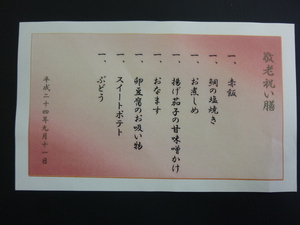 敬老祝い膳
一、赤飯
一、鯛の塩焼き
一、お煮しめ
一、揚げ茄子の甘味噌かけ
一、おなます
一、卵豆腐のお吸い物
一、スイートポテト
一、ぶどう
平成二十四年九月十一日